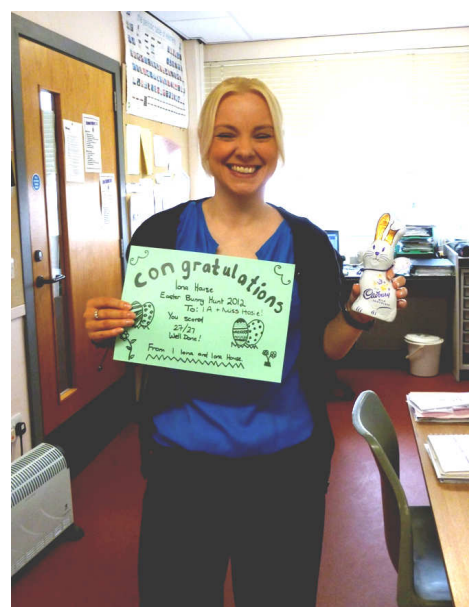 Congratulations
Iona House
Easter Bunny Hunt 2012
To: 1A + Miss Hosie!
You scored
27/27
Well Done!
From: 1 Iona and Iona House
Cadbury